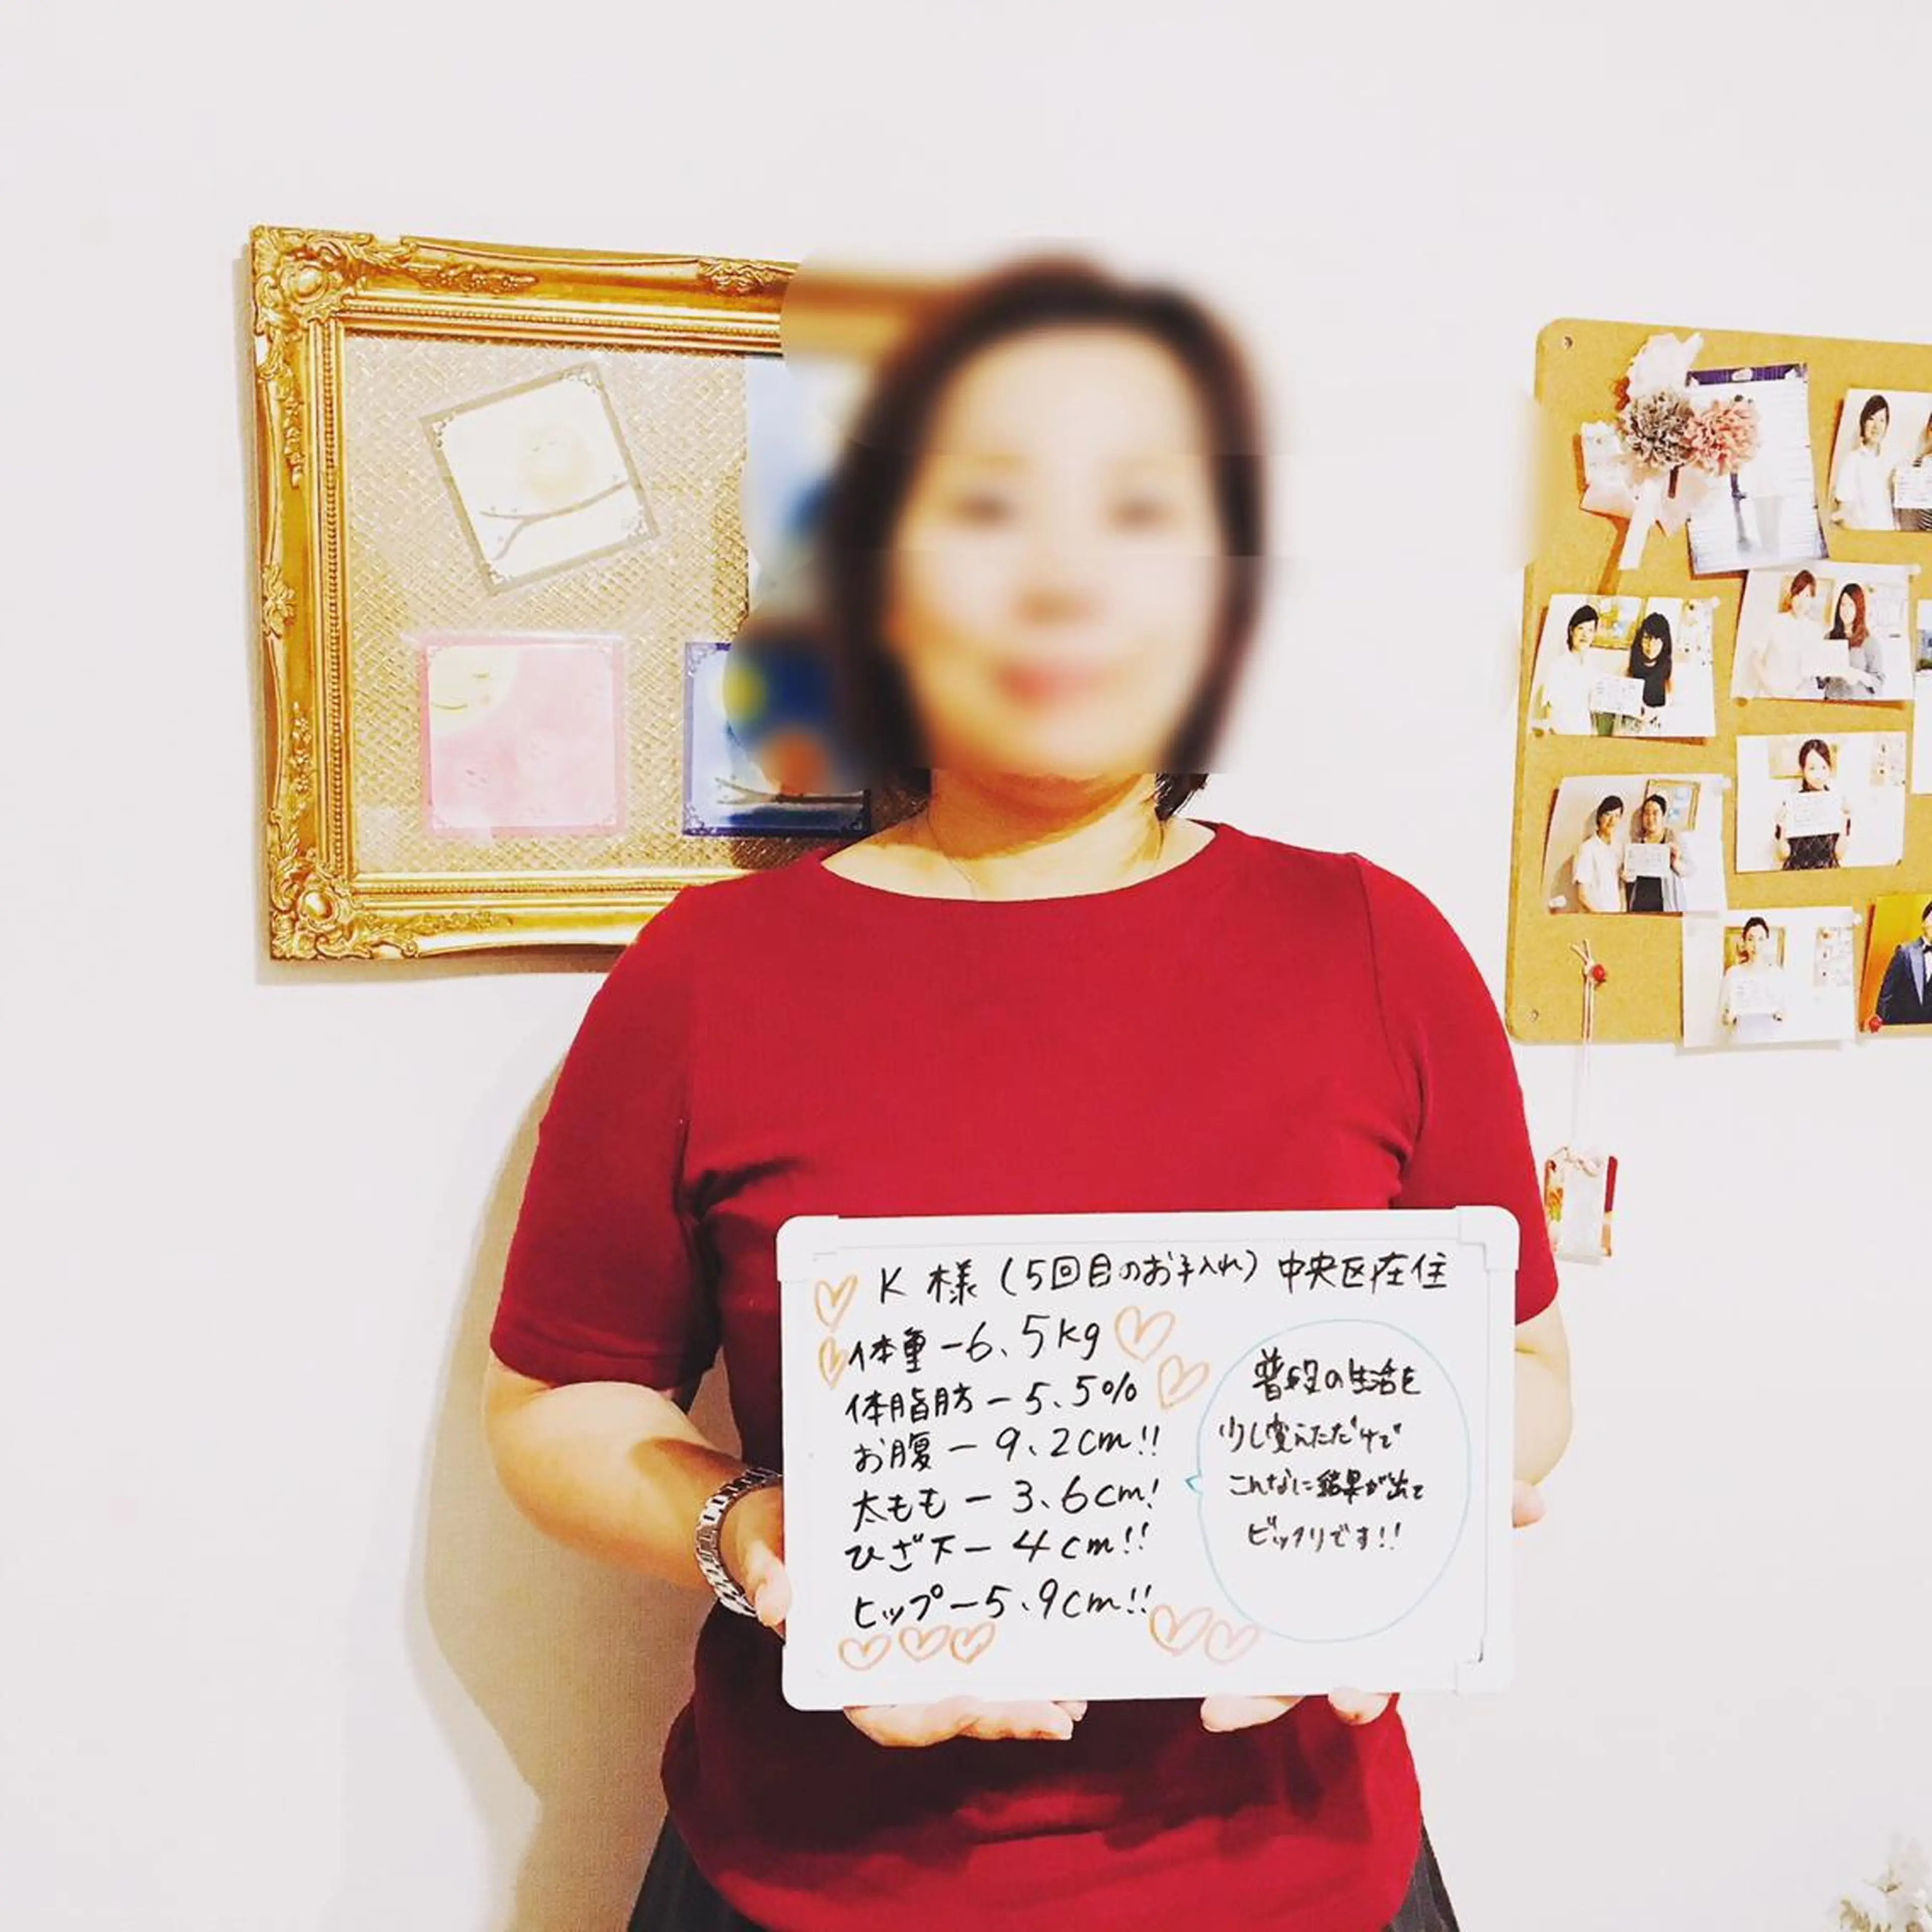 K 様 (5回目のお手入れ) 中央区在住
体重 -6.5kg
体脂肪 - 5.5%
お腹 - 9.2cm!!
太もも - 3.6cm!
ひざ下 - 4cm!!
ヒップ - 5.9cm!!
普段の生活を
少し変えただけで
こんなに結果が出て
ビックリです!!